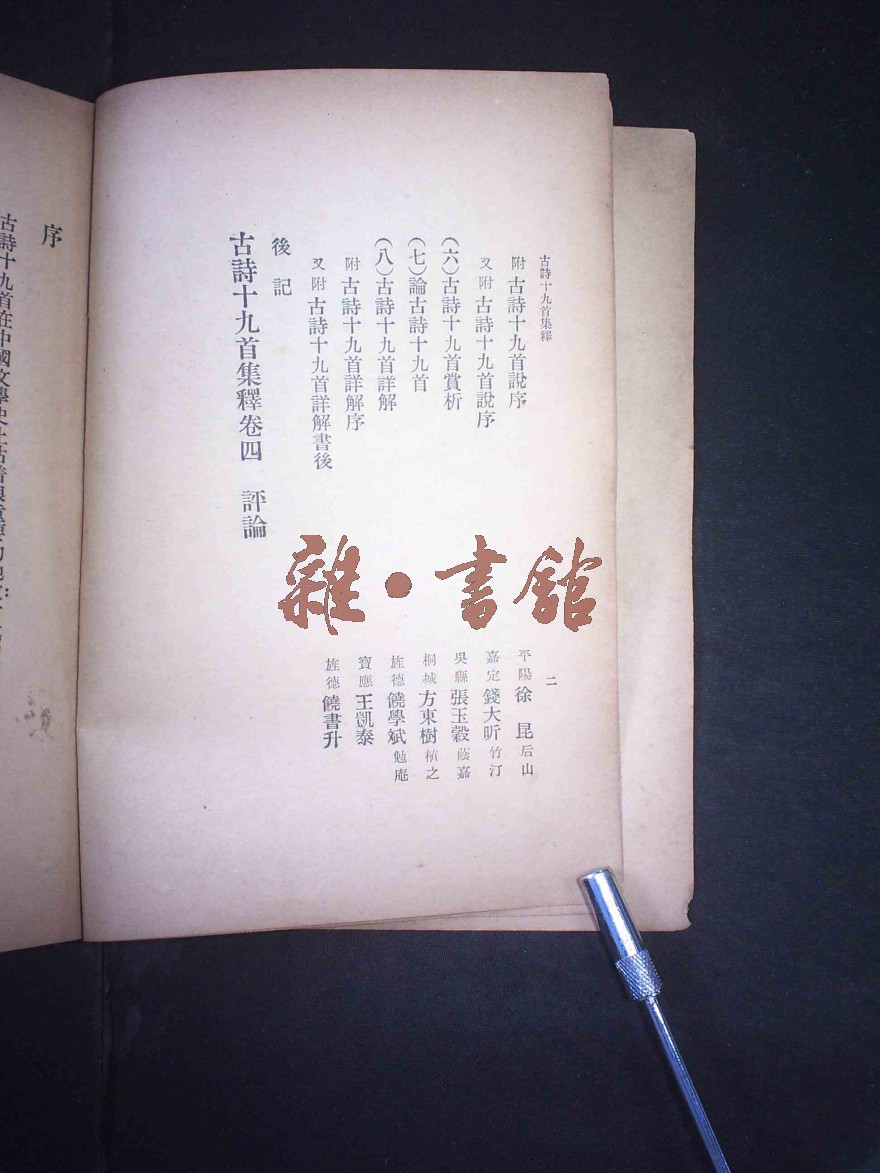 古詩十九首集釋 二
附 古詩十九首說序 平陽 徐昆 后山
又附 古詩十九首說序 嘉定 錢大昕 竹汀
(六)古詩十九首賞析 吳縣 張玉穀 蔭嘉
(七)論古詩十九首 桐城 方東樹 植之
(八)古詩十九首詳解 旌德 饒學斌 勉庵
附 古詩十九首詳解序 寶應 王凱泰
又附 古詩十九首詳解書後 旌德 饒書升
後記
古詩十九首集釋卷四 評論
雜·書館
序
古詩十九首在中國文學史上